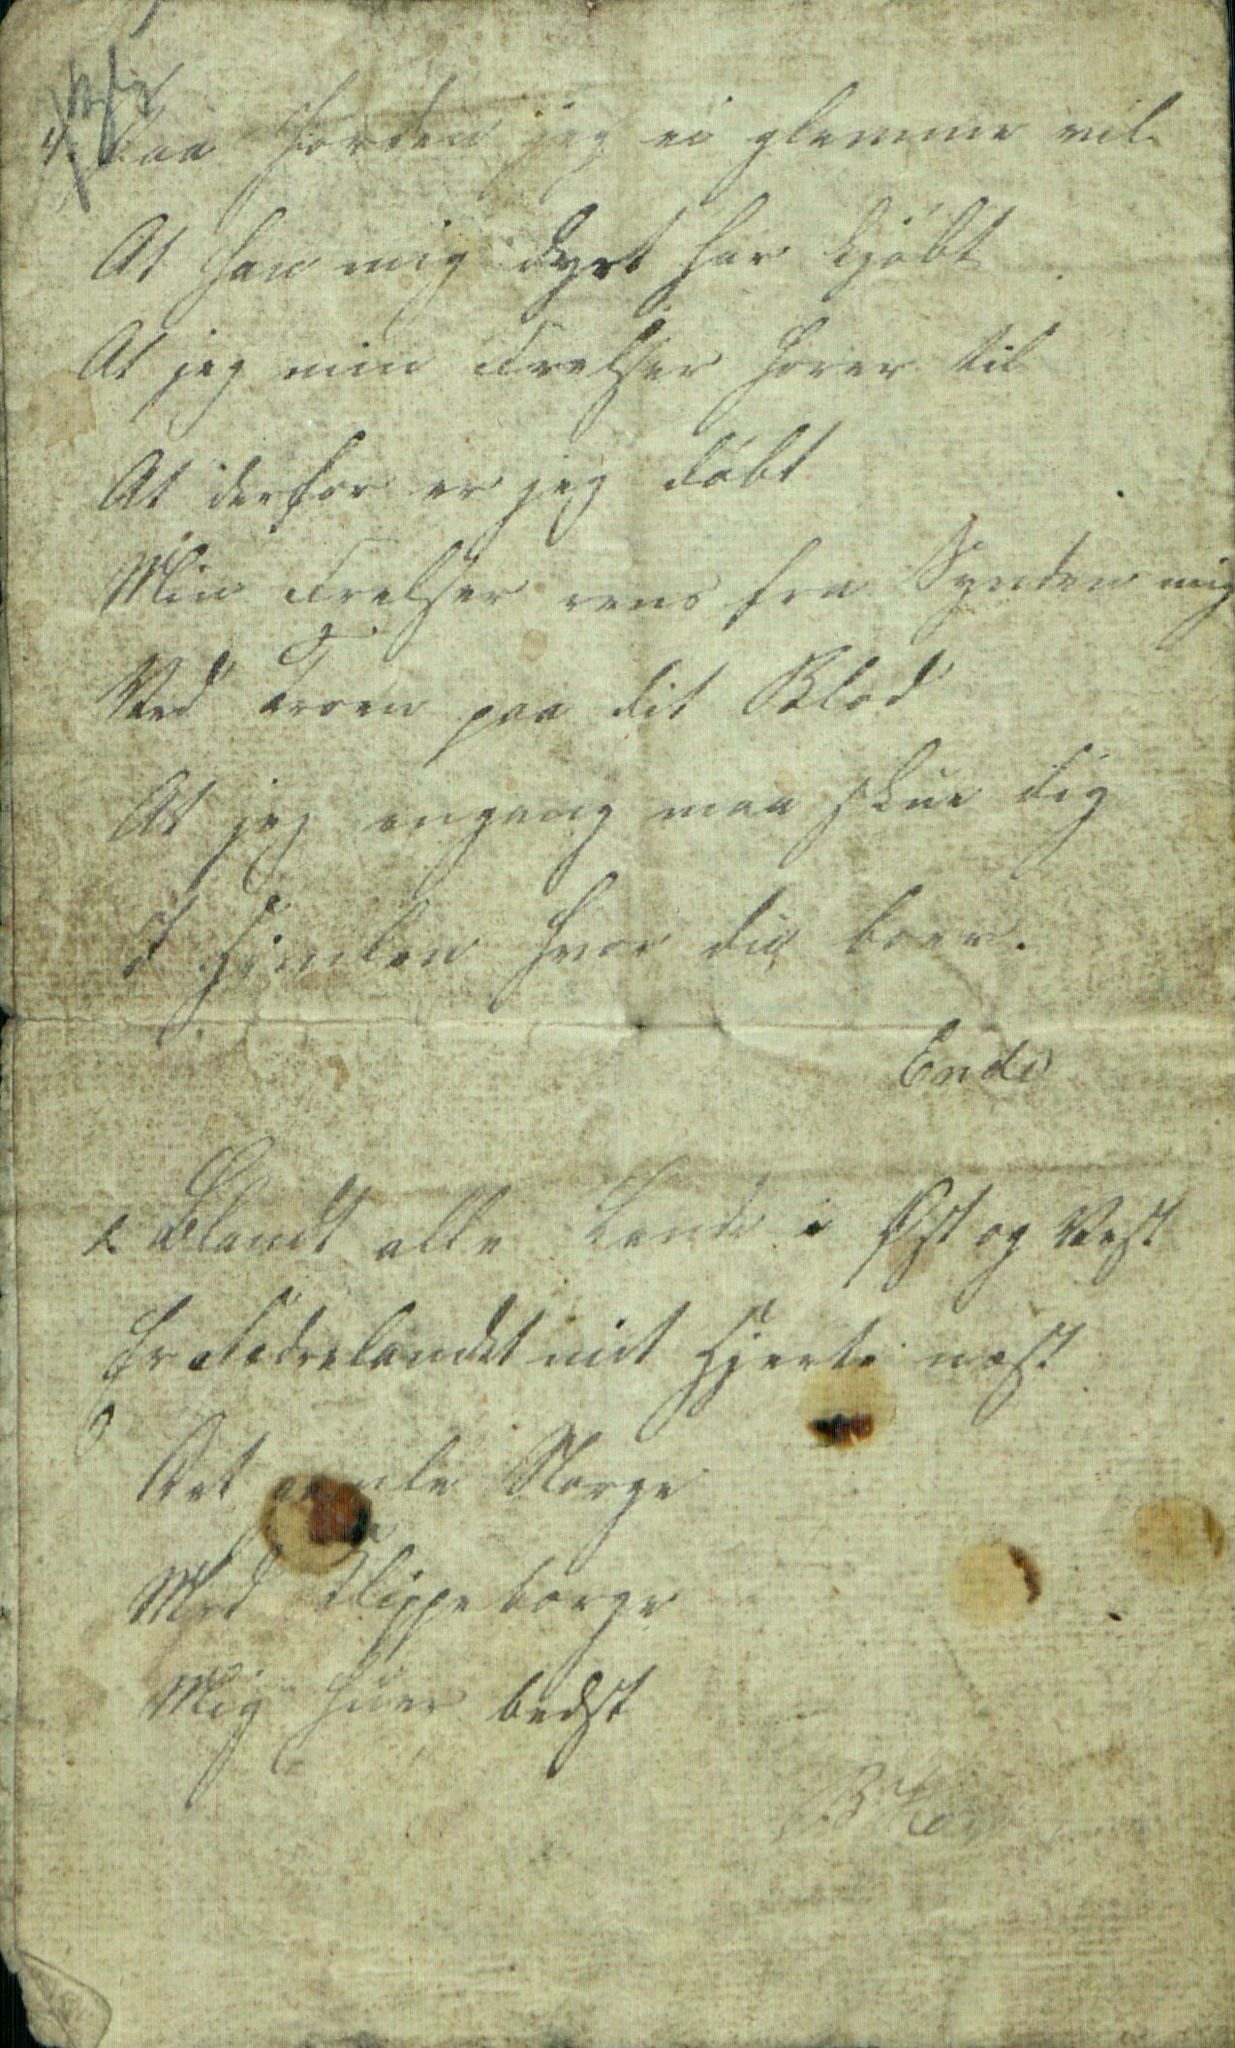 4. Paa Jorden jeg ei glemme vil
At han mig dyrt har kjöbt
At jeg min Frelser hører til
At derfor er jeg döbt
Min Frelser rens fra Synden mig
Ved Troen paa dit Blod
At jeg engang maa skue dig
I Himlen hvor du boer.
Ende
1. Blandt alle Lande i Øst og Vest
Er Fædrelandet mit Hjerte næst
Det gamle Norge
Med Klippeborge
Mig huer bedst